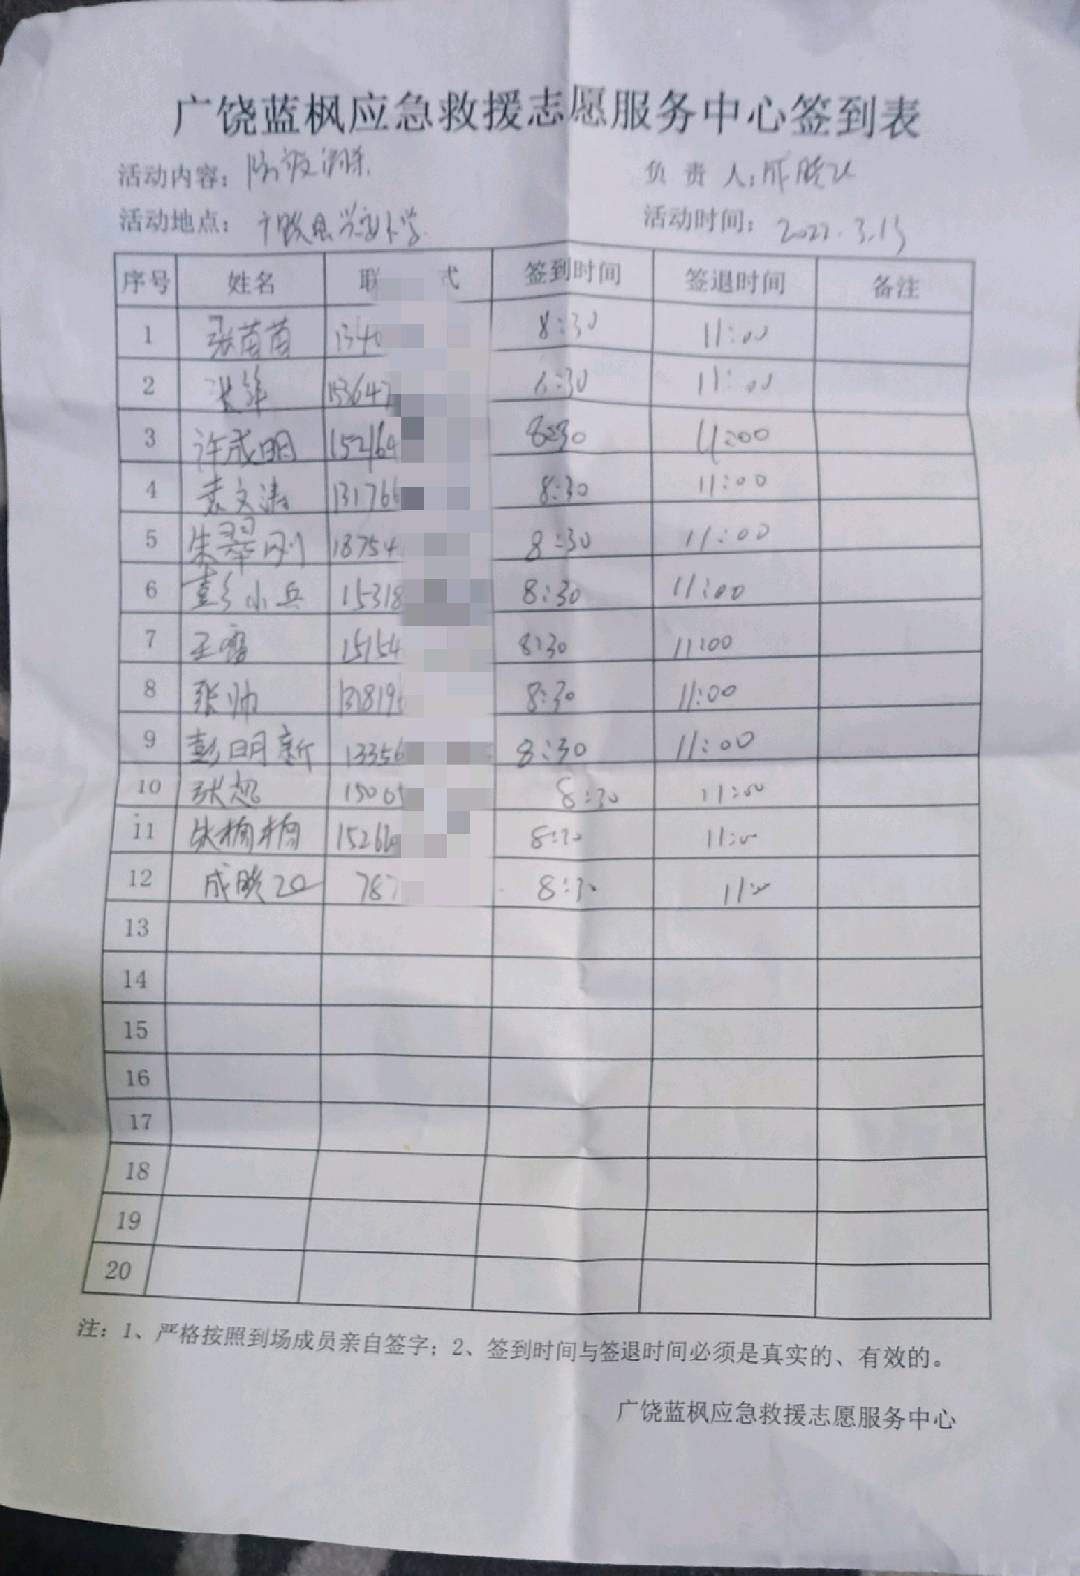 广饶蓝枫应急救援志愿服务中心签到表
活动内容：防疫消杀 负责人：成晓
活动地点：小学 活动时间：2022.3.13
序号 姓名 联 式 签到时间 签退时间 备注
1 张苗苗 1340 8:30 11:00
2 13647 8:30 11:00
3 许成明 152164 8:30 11:00
4 袁文涛 131766 8:30 11:00
5 朱翠刚 18754 8:30 11:00
6 彭小兵 15318 8:30 11:00
7 王雷 15154 8:30 11:00
8 张帅 13819 8:30 11:00
9 彭明新 13356 8:30 11:00
10 张旭 15005 8:30 11:00
11 楠楠 15266 8:30 11:00
12 成晓 787 8:30 11:00
13
14
15
16
17
18
19
20
注：1、严格按照到场成员亲自签字；2、签到时间与签退时间必须是真实的、有效的。
广饶蓝枫应急救援志愿服务中心